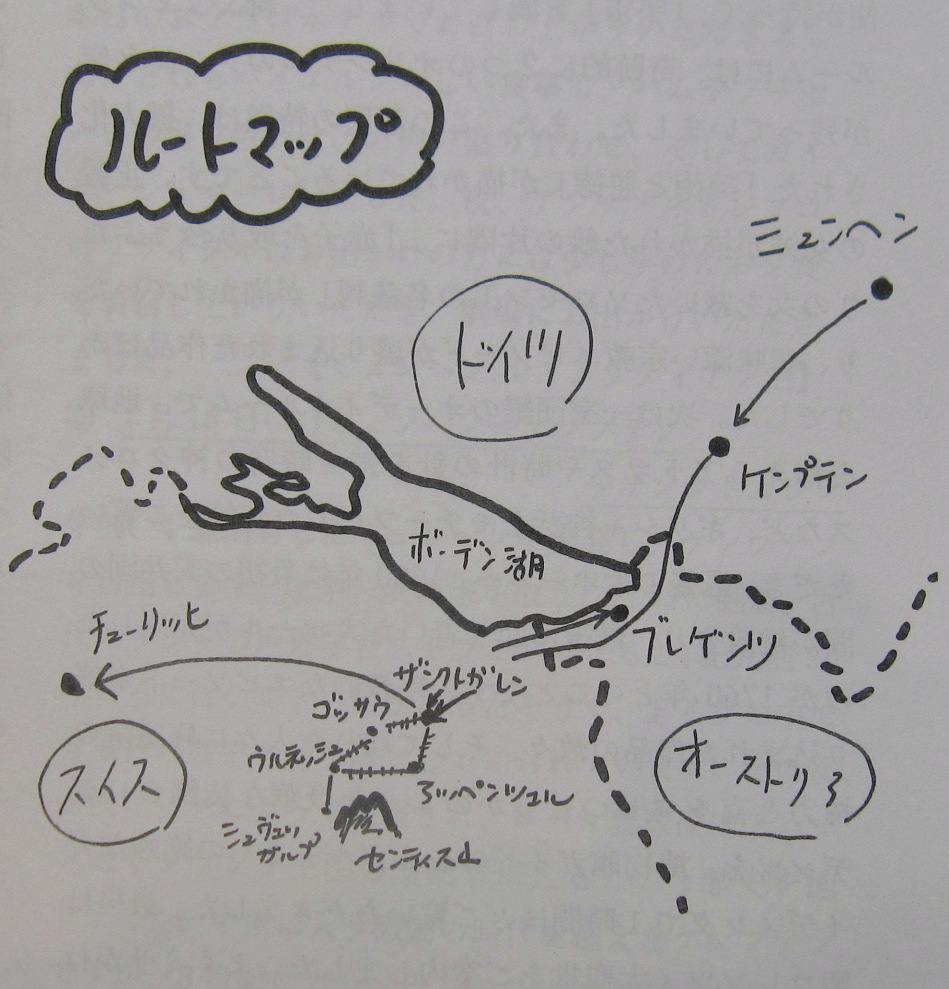 ルートマップ
ミュンヘン
ドイツ
ケンプテン
ボーデン湖
チューリッヒ
ブレゲンツ
ザンクトガレン
ゴッサウ
ウルネッシュ
スイス
オーストリア
アッペンツェル
シュヴェリ
ガルプ
センティス山